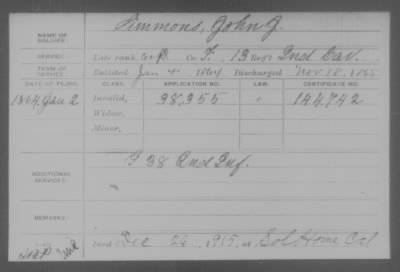 NAME OF SOLDIER: Simmons, John J.
SERVICE: Late rank, Corp Co. F, 13 Reg't Ind Cav.
TERM OF SERVICE: Enlisted Jan 4 1864 Discharged Nov 18, 1865
DATE OF FILING. CLASS. APPLICATION NO. LAW. CERTIFICATE NO.
Jan 2 Invalid, 98,955 144,742
Widow,
Minor,
ADDITIONAL SERVICES: F 38 Ind Inf.
REMARKS:
Died Dec 26, 1915, at Sol Home Cal